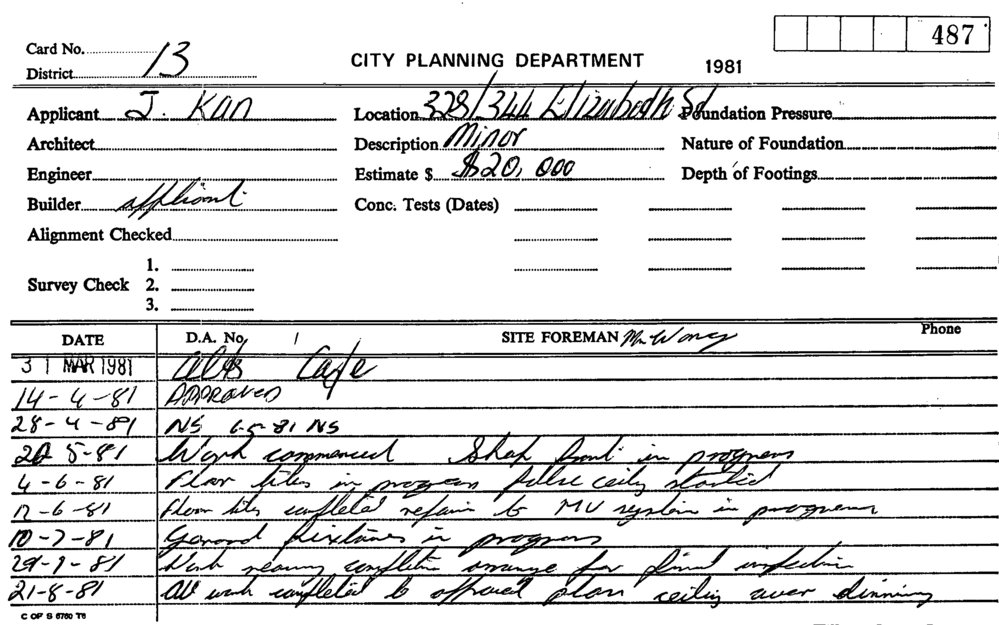 487
Card No. 13
District
CITY PLANNING DEPARTMENT 1981
Applicant J. Kan Location 328/344 Elizabeth St Foundation Pressure
Architect Description Minor Nature of Foundation
Engineer Estimate $ $20,000 Depth of Footings
Builder applicant Conc. Tests (Dates)
Alignment Checked
1.
Survey Check 2.
3.
DATE D.A. No. SITE FOREMAN Mr Wong Phone
31 MAR 1981 alts Cafe
14-4-81 APPROVED
28-4-81 NS 6-5-81 NS
20 5-81 Work commenced Shop front in progress
4-6-81 Floor tiles in progress false ceiling started
12-6-81 Floor tiles completed repairs to MV system in progress
10-7-81 General fixtures in progress
29-7-81 Work nearing completion arrange for final inspection
21-8-81 All work completed to approved plan ceiling over dinning
C OF S 6760 T6